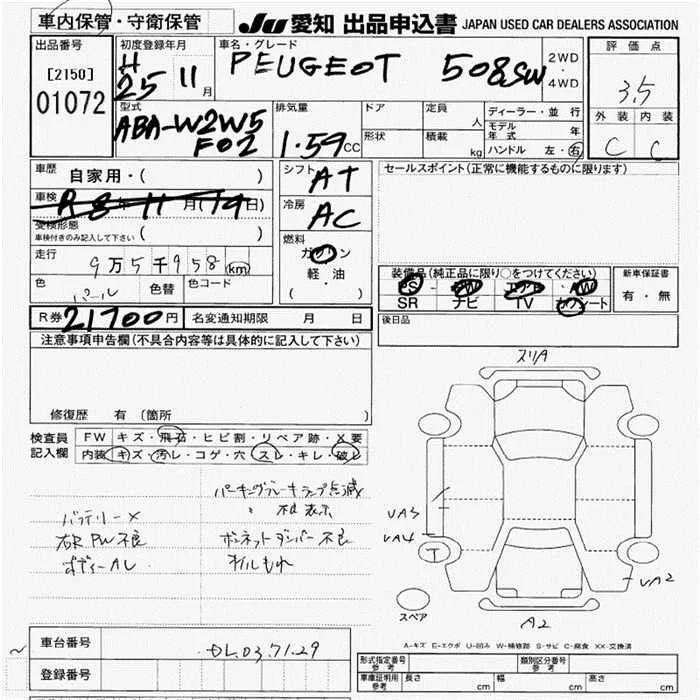 車内保管・守衛保管 JU 愛知 出品申込書 JAPAN USED CAR DEALERS ASSOCIATION
出品番号 初度登録年月 車名・グレード 評価点
[2150] H 25 11月 PEUGEOT 508SW 2WD・4WD 3.5
01072 型式 排気量 ドア 定員 人 ディーラー・並行 外装 内装
ABA-W2W5F02 1.59cc 形状 積載 kg モデル年式 年 C C
ハンドル 左・右
車歴 自家用・( ) シフト AT セールスポイント(正常に機能するものに限ります)
車検 R8年11月(19日) 冷房 AC
受検形態 ( )
車検付きのみ記入して下さい
燃料
走行 9万5千958(km) ガソリン
軽・油
( )
装備品(純正品に限り○をつけてください) 新車保証書
色 パール 色替 色コード PS・PW エアB・AW 有・無
SR ナビ TV カワシート
R券 21700円 名変通知期限 月 日 後日品
注意事項申告欄(不具合内容等は具体的に記入して下さい)
修復歴 有(箇所 )
検査員 FW キズ・飛石・ヒビ割・リペア跡・X要
記入欄 内装 キズ・汚レ・コゲ・穴・スレ・キレ・破レ
パーキングブレーキランプ点滅
バッテリーX 不良表示
右R PW不良 ボンネットダンパー不良
ボディーAL オイルもれ
スリA
UA3
UA4
T
UA2
スペア
A2
車台番号 DL.03.71.29
登録番号
A-キズ E-エクボ U-凹み W-補修跡 S-サビ C-腐食 XX-交換済
形式指定番号 参考 類別区分番号 参考
車庫証明用 参考 長さ cm 幅 cm 高さ cm